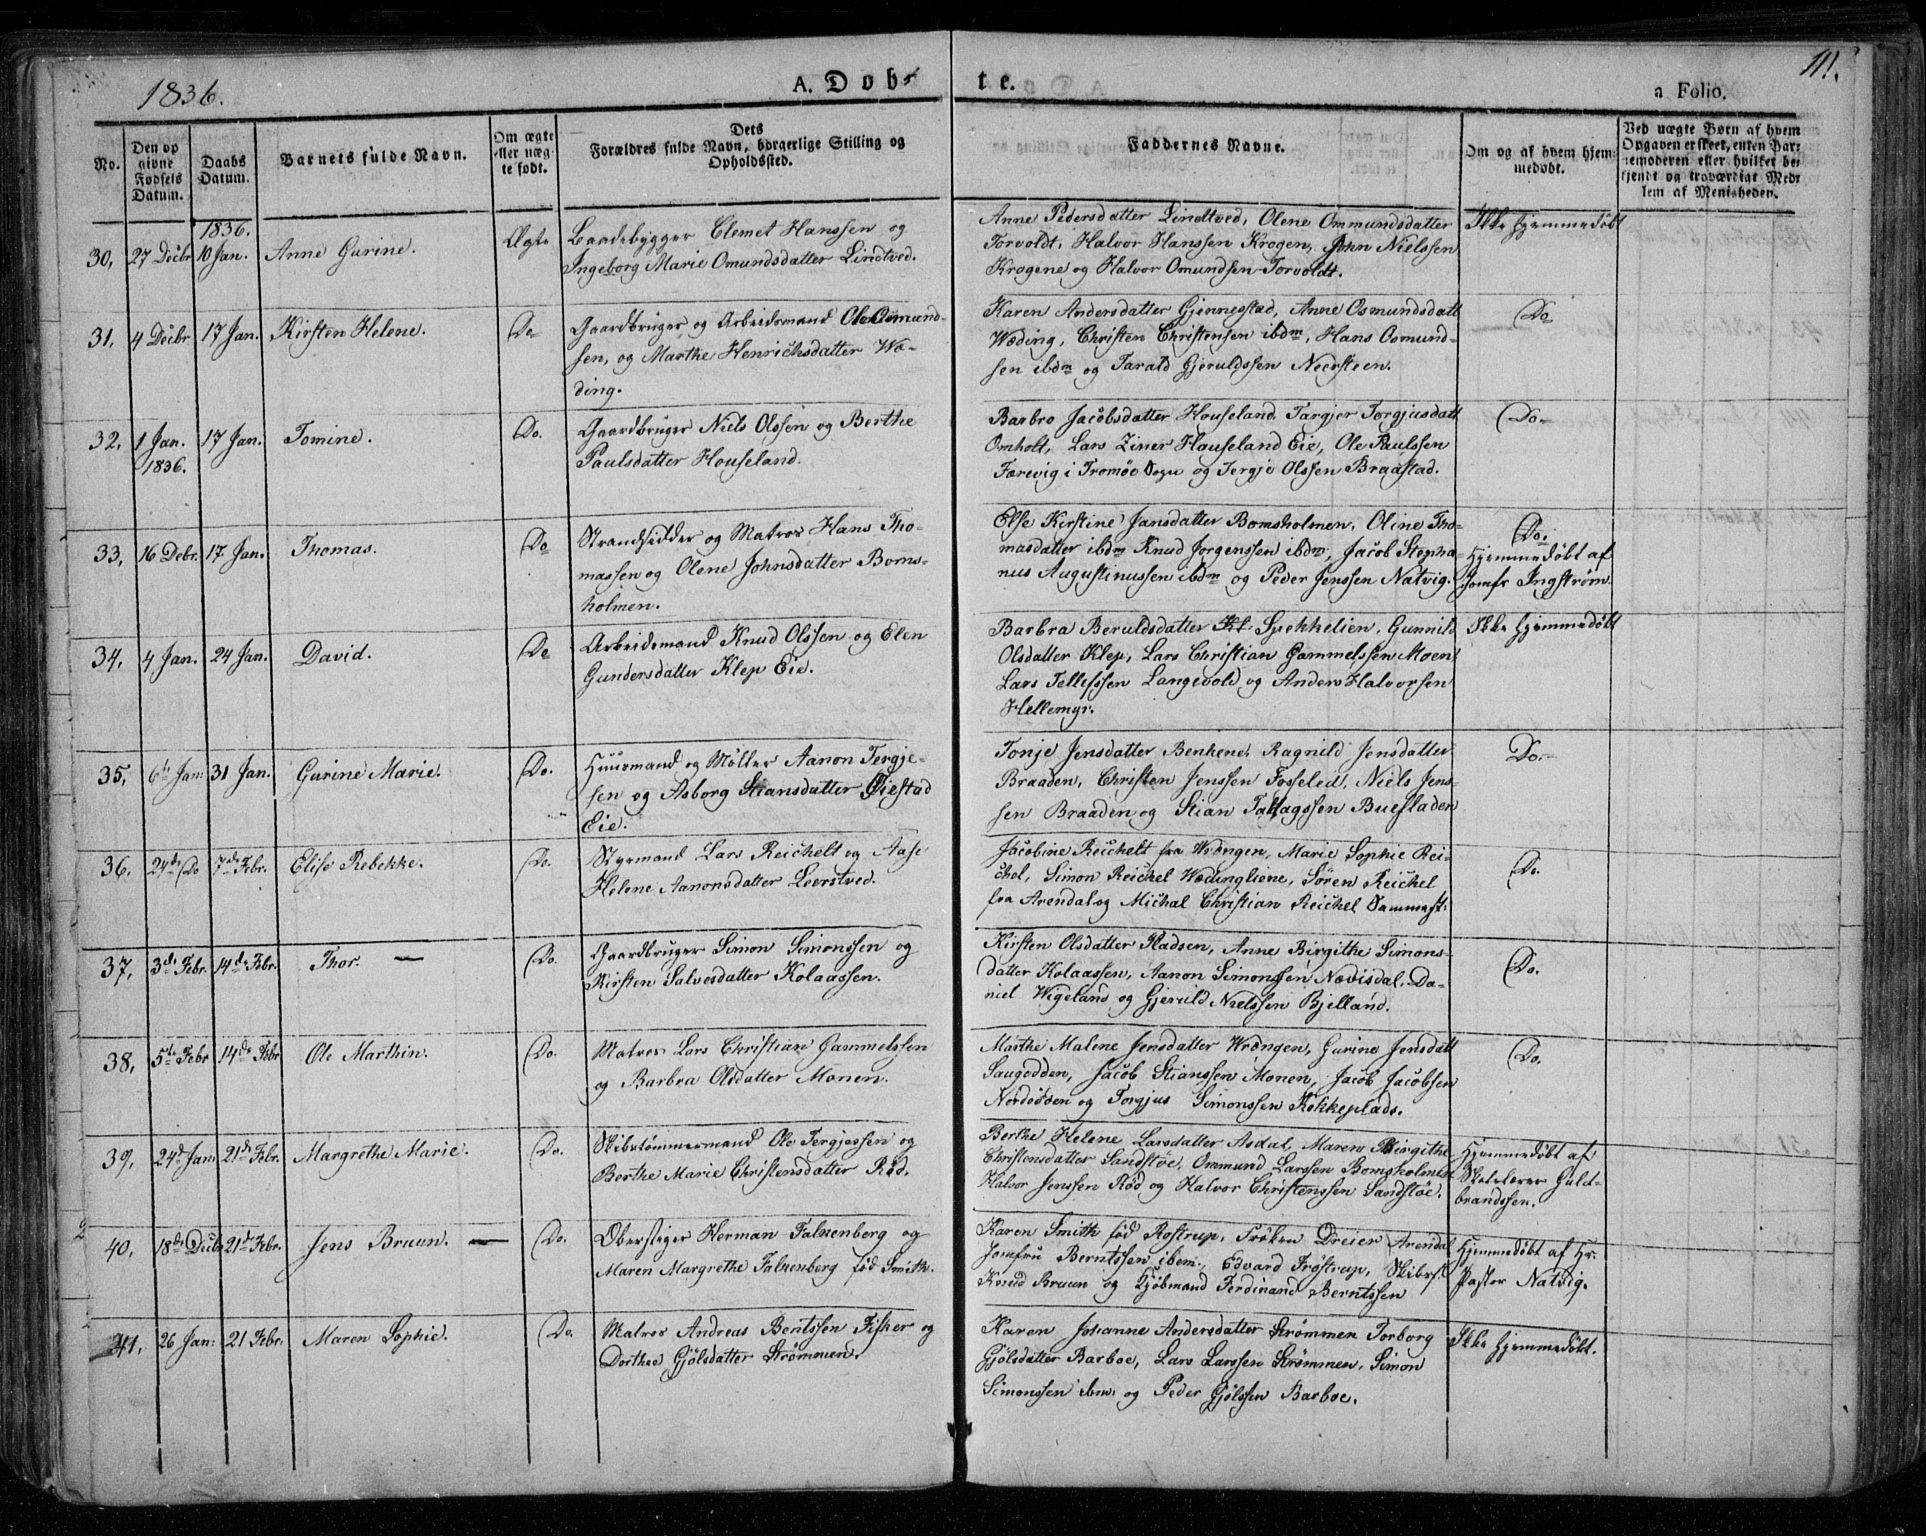 1836.
A. Døb-
te.
111.
a Folio.
No.
Den opgivne Fødsels Datum.
Daabs Datum.
Barnets fulde Navn.
Om ægte eller uægte født.
Dets Forældres fulde Navn, borgerlige Stilling og Opholdssted.
Faddernes Navne.
Om og af hvem hjemmedøbt.
Ved uægte Børn af hvem Opgaven er skeet, enten Barnemoderen eller hvilket bekjendt og troværdigt Medlem af Menigheden.
1836.
30, 27 Decbr 10 Jan. Anne Gurine. Ægte
Baadebygger Clemet Hanssen og
Ingeborg Marie Omundsdatter Lindtved.
Anne Pedersdatter Lindtved, Olene Ommundsdatter
Torvoldt, Halvor Hanssen Krogen, John Nielssen
Krogene og Halvor Omundsen Torvoldt.
Ikke hjemmedøbt
31, 4 Decbr 17 Jan. Kirsten Helene. Do
Gaardbruger og Arbeidsmand Ole Osmund-
sen, og Marthe Henrichsdatter Wæ-
ding.
Karen Andersdatter Gjennestad, Anne Osmundsdatt
Wæding, Christen Christensen ibdm, Hans Osmund-
sen ibdm og Tarald Gjeruldssen Neersteen.
Do
32, 1 Jan. 1836. 17 Jan. Tomine. Do.
Gaardbruger Niels Olssen og Berthe
Paulsdatter Houseland.
Barbro Jacobsdatter Houseland, Targjer Torgjusdatt
Omholt, Lars Ziner Houseland Eie, Ole Paulssen
Færevig i Tromøe Sogn og Tergje Olssen Braastad.
Do.
33, 16 Debr. 17 Jan. Thomas. Do
Strandsidder og Matros Hans Tho-
massen og Olene Johnsdatter Boms-
holmen.
Else Kirstine Jansdatter Bomsholmen, Oline Tho-
masdatter ibdm Knud Jorgenssen ibdm, Jacob Stepha-
nus Augustinussen ibdm og Peder Jenssen Natvig.
Do.
Hjemmedøbt af
Jomfr Ingstrøm.
34, 4 Jan. 24 Jan. David. Do
Arbeidsmand Knud Olssen og Elen
Gundersdatter Klep Eie.
Barbra Beruldsdatter Spekkelien, Gunnild
Olsdatter Klep, Lars Christian Gammelssen Moen
Lars Tellefssen Langevold og Anders Halvorsen
Hellemyr.
Ikke hjemmedøbt
35, 6te Jan: 31 Jan. Gurine Marie. Do.
Huusmand og Møller Aanon Tergje-
sen og Asborg Stiansdatter Øiestad
Eie.
Tonje Jensdatter Benkene, Ragnild Jensdatter
Braaden, Christen Jenssen Fosselied, Niels Jens-
sen Braaden og Stian Tallagssen Buesladen
Do.
36. 24de Do 7de Febr. Elise Rebekke. Do.
Styrmand Lars Reichelt og Aase
Helene Aanonsdatter Leerstved.
Jacobine Reichelt fra Wrængen, Marie Sophie Rei-
chel, Simon Reichel Wædingliene, Søren Reichel
fra Arendal og Michal Christian Reichel Sammest:
Do.
37, 3de Febr. 14de Febr. Thor. — Do.
Gaardbruger Simon Simonssen og
Kirsten Salvesdatter Kolaassen.
Kirsten Olsdatter Pladsen, Anne Birgithe Simons-
datter Kolaassen, Aanon Simonssen Nævisdal, Da-
niel Wigeland og Gjeruld Nielssen Bjelland.
Do.
38, 5te Febr 14de Febr Ole Marthin. Do.
Matros Lars Christian Gammelssen
og Barbra Olsdatter Monen.
Marthe Malene Jensdatter Wrængen, Gurine Jensdatt
Saugodden, Jacob Stianssen Monen, Jacob Jacobsen
Nordodden og Torgjus Simonssen Kokkeplads.
Do.
39, 24de Jan: 21de Febr. Margrethe Marie. Do.
Skibstømmermand Ole Tergjessen og
Berthe Marie Christensdatter Rød.
Berthe Helene Larsdatter Asdal, Maren Birgithe
Christensdatter Sandstøe, Ommund Larssen Bomsholmen
Halvor Jenssen Rød og Halvor Christenssen Sandstøe.
Hjemmedøbt af
Skolelærer Guld-
brandssen.
40, 18de Decbr 21de Febr. Jens Bruun. — Do.
Oberstiger Herman Falkenberg og
Maren Margrethe Falkenberg fød Smith.
Karen Smith fød Rostrup, Frøken Dreier Arendal
Jomfru Berntssen ibem, Edvard Frøstrup, Skibsf.
Knud Bruun og Kjøbmand Ferdinand Berntssen
Hjemmedøbt af Hr.
Pastor Natvig.
41, 26 Jan: 21 Febr. Maren Sophie. Do.
Matros Andreas Bentssen Fisker og
Dorthee Gjølsdatter Strømmen.
Karen Johanne Andersdatter Strømmen Torborg
Gjølsdatter Barboe, Lars Larssen Strømmen, Simon
Simonssen ibm: og Peder Gjølssen Barboe.
Ikke hjemmedøbt.